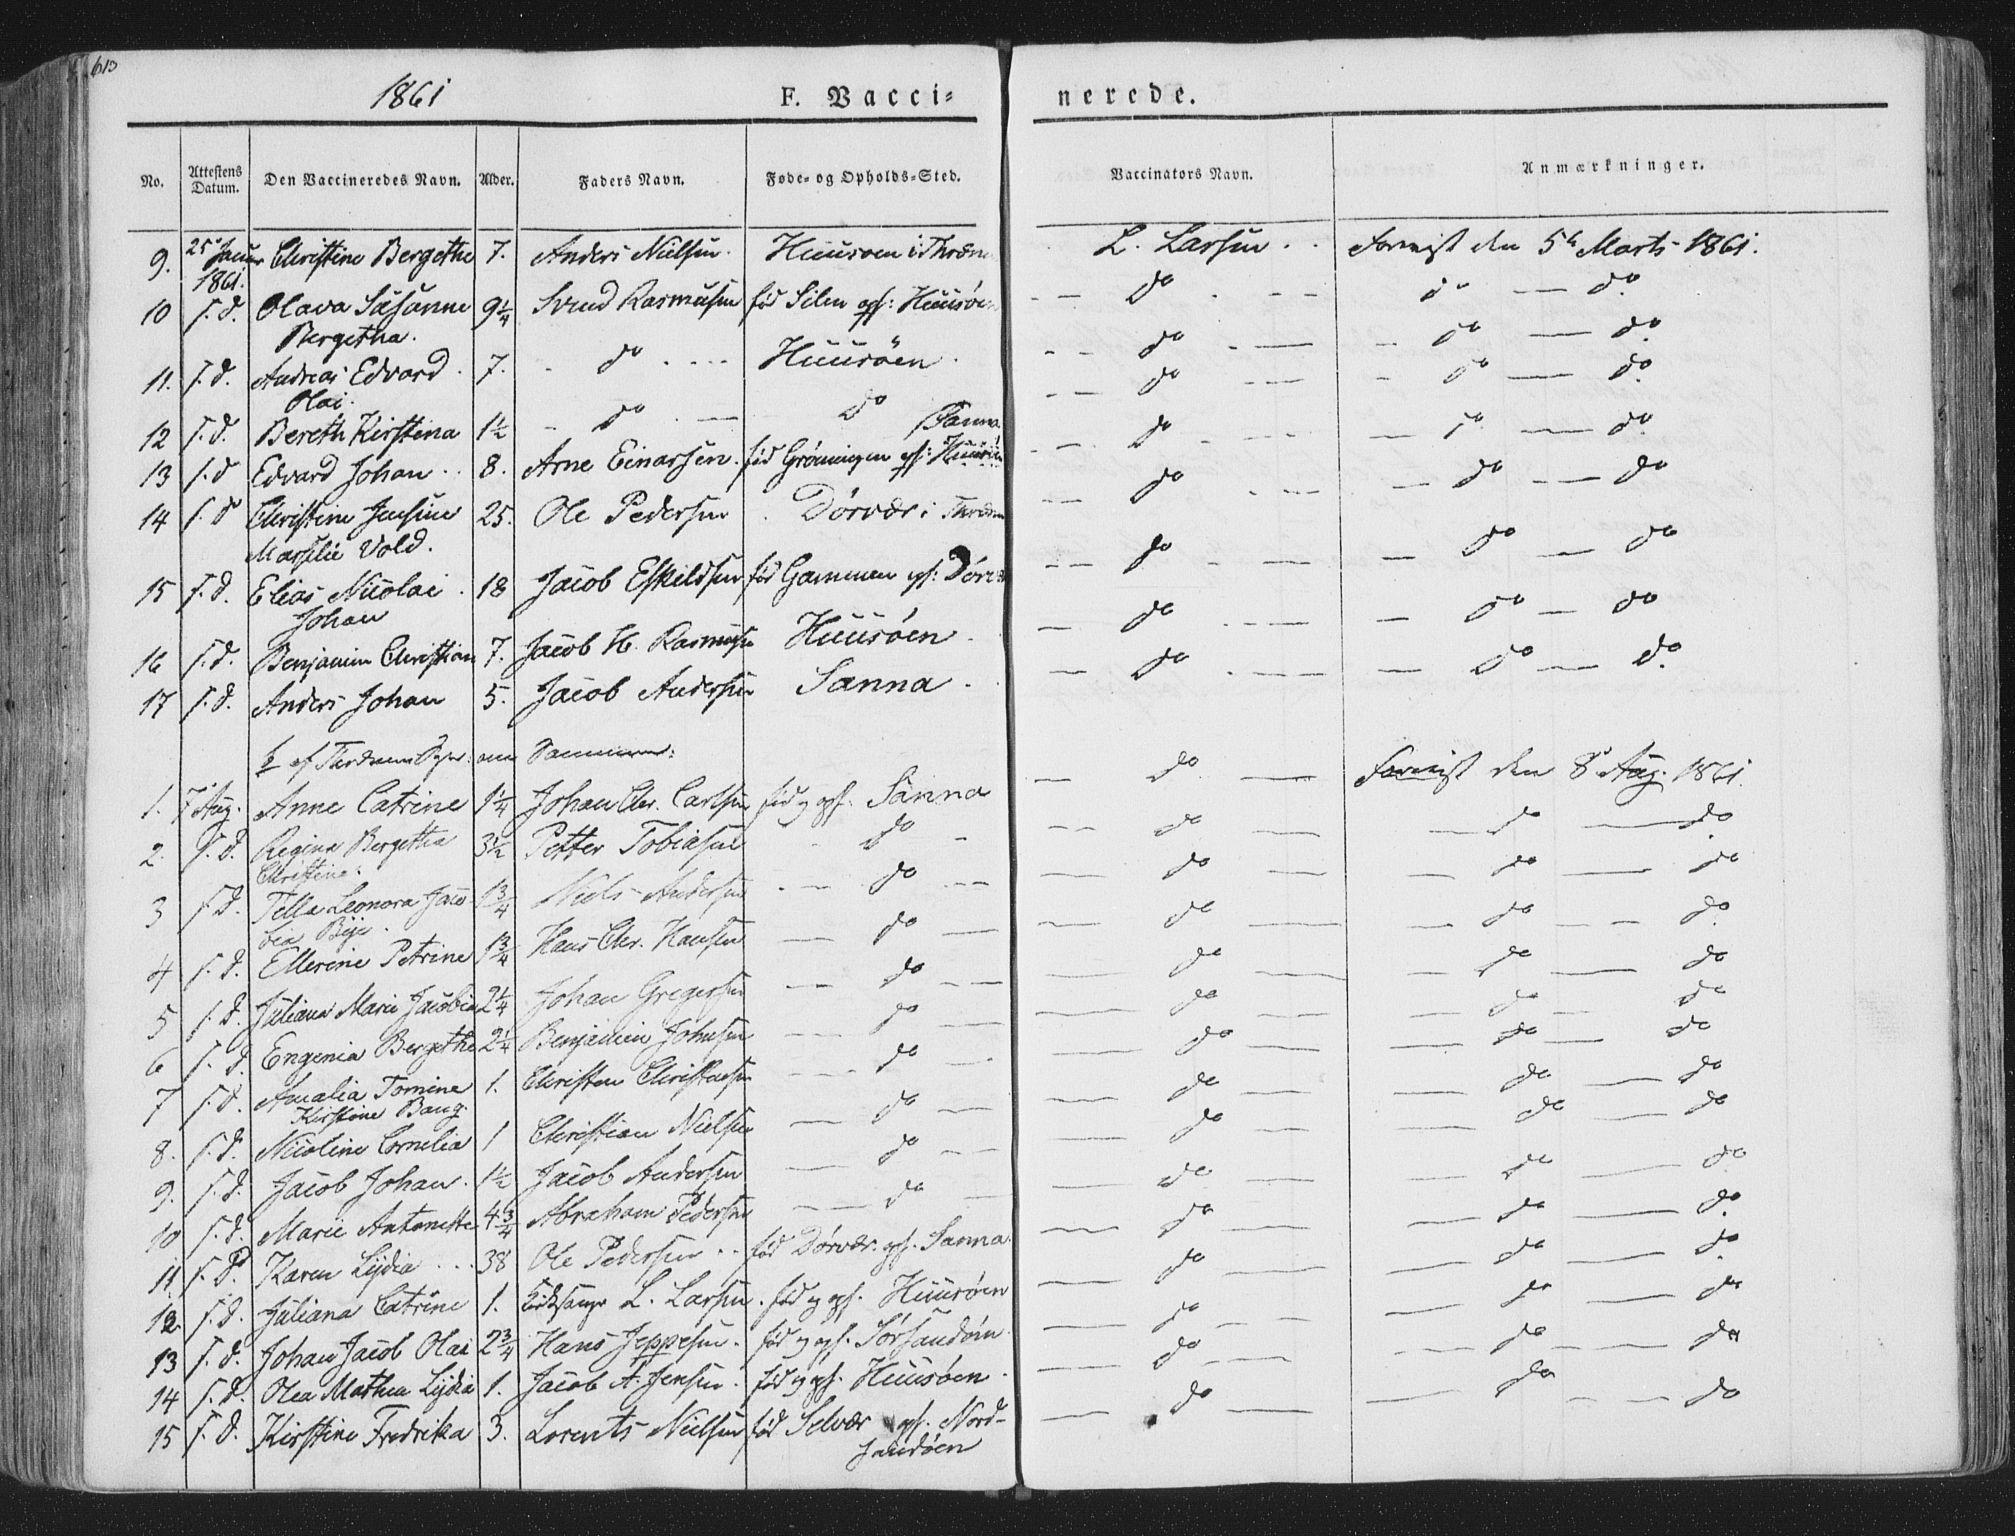 613
1861
F. Vacci=
nerede.
No. Attestens Datum. Den Vaccineredes Navn. Alder. Faders Navn. Føde= og Opholds=Sted. Vaccinators Navn. Anmærkninger.
9. 25 1861. Christine Bergethe 7. Anders Nielsen. Huusøen i L. Larsen. den 5te Marts 1861.
10 s. d. Olava Susanne Bergetha. 9 1/4 Svend Rasmussen fød Silen ops: Huusøen do do do
11. s. d. Andreas Edvard Olai. 7. do Huusøen do do do
12 s. d. Bereth Kirstina 1 1/2 do do do do do
13 s. d Edvard Johan 8. Arne Einarsen. fød Grønningen ops: Huusøen do do do
14 s. d Christine Jensine Vold. 25. Ole Pedersen Dorvær i do do do
15 s. d. Elias Nicolai Johan 18 Jacob Eskildsen fød Gammen ops: do do do
16 s. d. Benjamin Christian 7. Jacob H. Rasmusen Huusøen do do do
17 s. d. Anders Johan 5. Jacob Andersen Sanna do do do
af
1. 7 Aug. Anne Catrine 1 1/4 Johan Chr. Carlsen fød og ops. Sanna do den 8 Aug. 1861.
2. s. d. Regina Bergetha Christine. 3 1/2 Petter Tobiasen do do do do
3 s. d. Tella Leonora Jacobia 1 3/4 Niels Andersen do do do do
4 s. d. Ellerine Petrine 1 3/4 Hans Chr. Hansen do do do do
5 s. d. Juliana Marie Jacobia 2 1/4 Johan Gregersen do do do do
6 s. d. Engenia Bergethe 2 1/4 Benjamin Johnsen do do do do
7 s. d. Amalia Tomine Kirstine Bang. 1. Christen Christensen do do do do
8. s. d. Nicoline Cornelia 1 Christian Nielsen do do do do
9. s. d. Jacob Johan. 1 1/2 Jacob Andersen do do do do
10 s. d. Marie Antonette 4 3/4 Abraham Pedersen do do do do
11. s. d. Karen Lydia 38 Ole Pedersen fød Dorvær. ops. Sanna. do do do
12. s. d. Juliana Catrine 1. L. Larsen. fød og ops. Huusøen do do do
13 s. d. Johan Jacob Olai 2 3/4 Hans Jeppesen. fød og ops. Sørsandøen do do do
14 s. d. Olea Mathea Lydia 1. Jacob A. Jensen. fød og ops. Huusøen do do do
15 s. d. Kirstine Fredrikka 3. Lorents Nielsen fød Selvær ops. Nord- do do do
sandøen